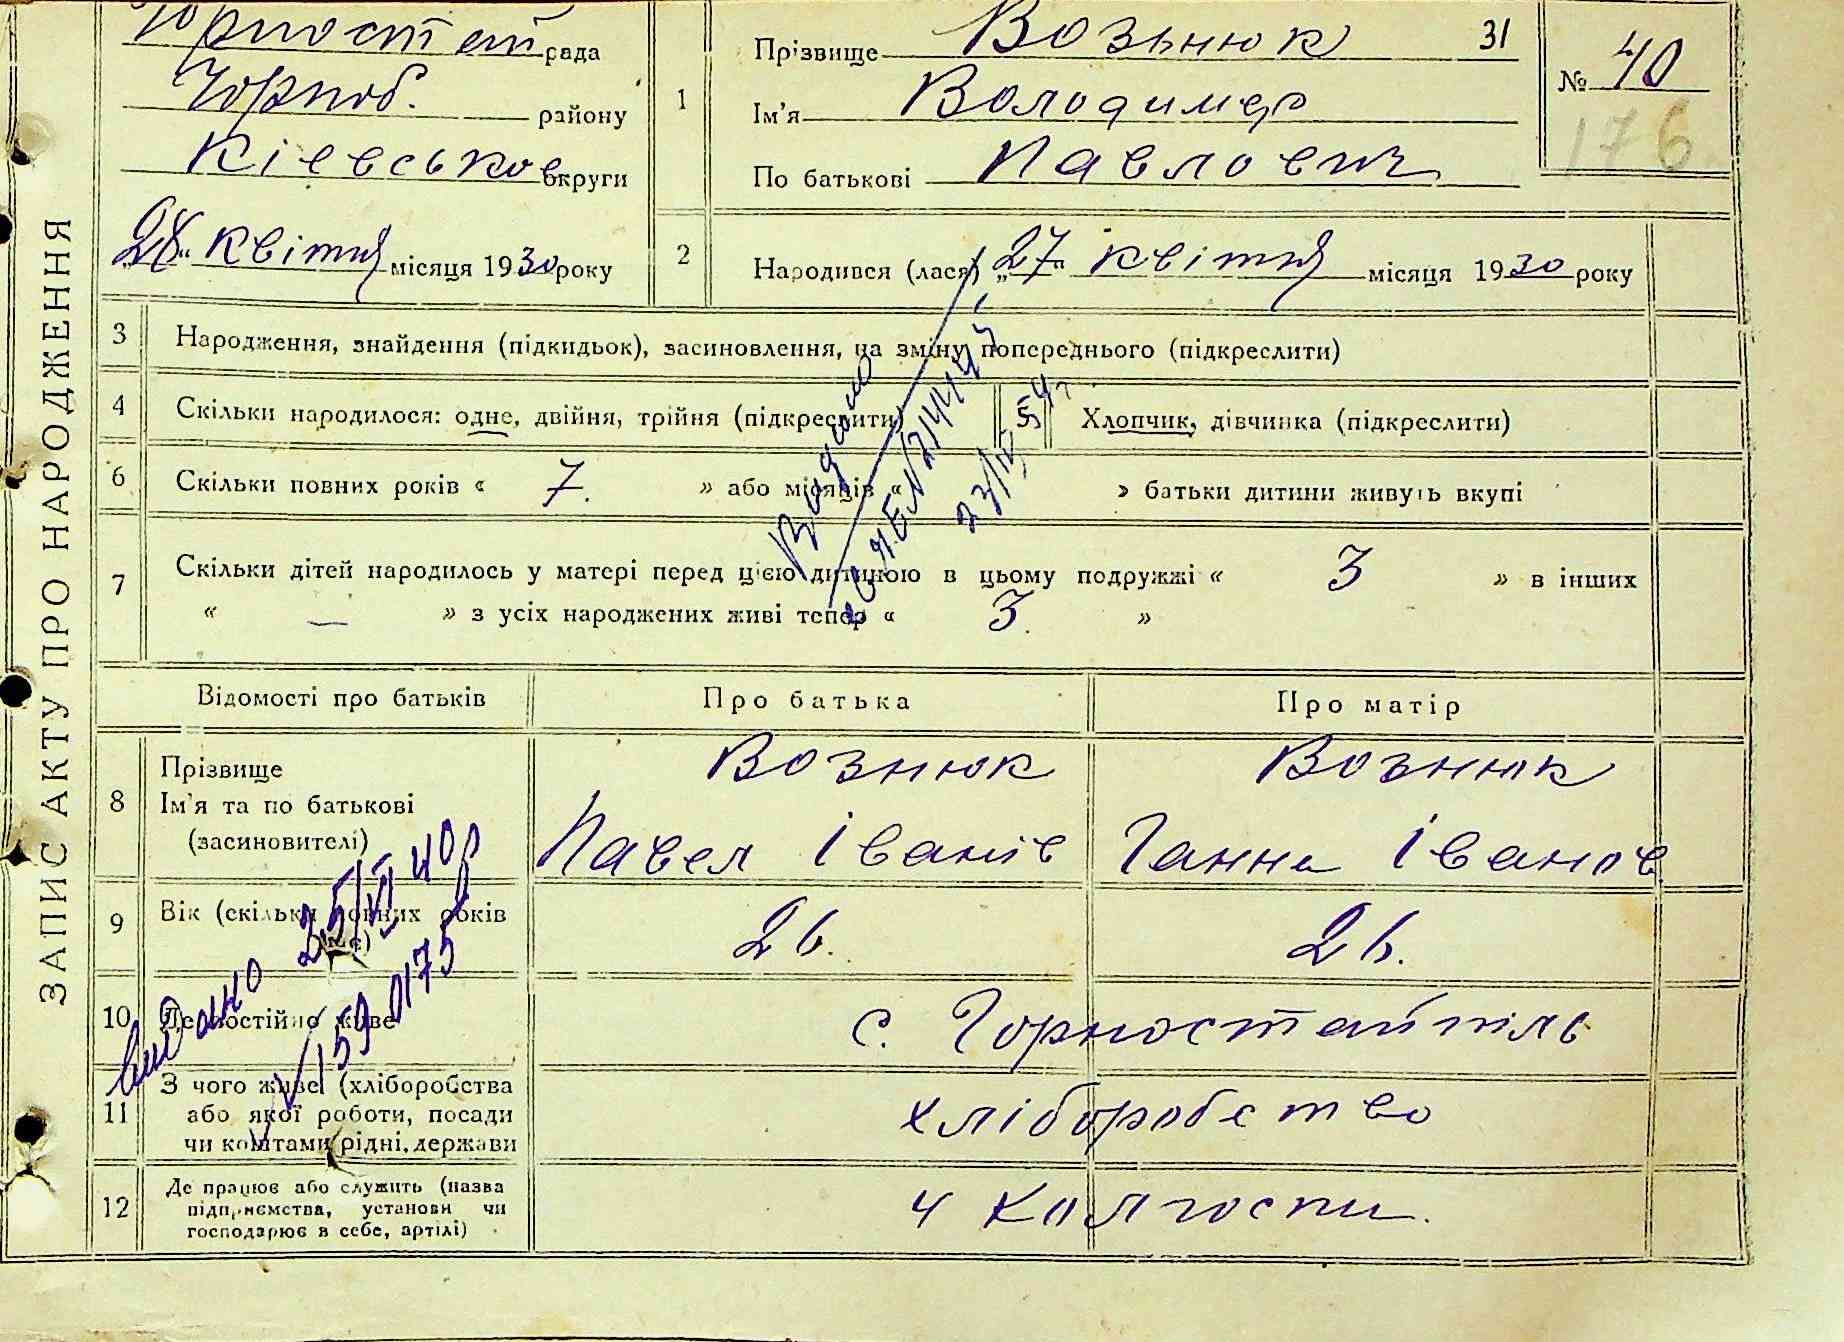 ЗАПИС АКТУ ПРО НАРОДЖЕННЯ
Горностай рада
Чорноб. району
Кіевськоє округи
„28“ квітня місяця 1930 року
1
Прізвище Возьнюк 31
Ім'я Володимер
По батькові Павлович
№ 40
176
2
Народився (лася) „27“ квітня місяця 1930 року
3 Народження, знайдення (підкидьок), засиновлення, на зміну попереднього (підкреслити)
4 Скільки народилося: одне, двійня, трійня (підкреслити) 5 Хлопчик, дівчинка (підкреслити)
6 Скільки повних років « 7. » або місяців « » батьки дитини живуть вкупі
7 Скільки дітей народилось у матері перед цією дитиною в цьому подружжі « 3 » в інших
« — » з усіх народжених живі тепер « 3. »
Видано
23/IV 54г
Відомості про батьків Про батька Про матір
8 Прізвище
Ім'я та по батькові
(засиновителі)
Вознюк
Павел Іванів
Вознюк
Ганна Іванов
9 Вік (скільки повних років має)
26. 26.
10 Де постійно живе
с. Горностайпіль
11 З чого живе (хліборобства
або якої роботи, посади
чи коштами рідні, держави
хліборобство
12 Де працює або служить (назва
підприємства, установи чи
господарює в себе, артілі)
у колгоспи.
видано 25/VI 40р
№159 0175